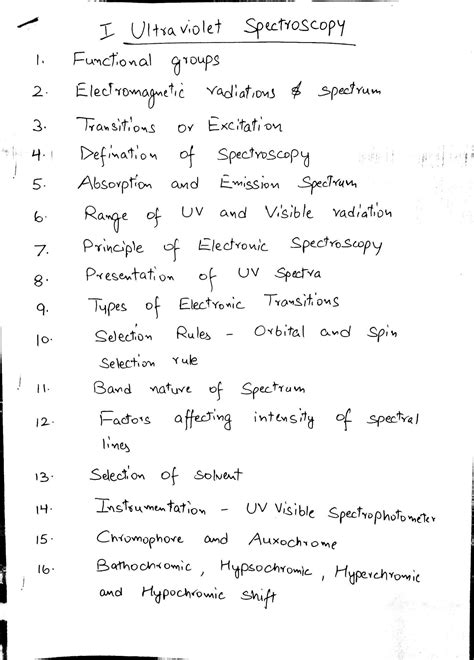 I Ultraviolet Spectroscopy
1. Functional groups
2. Electromagnetic radiations & spectrum
3. Transitions or Excitation
4. Defination of Spectroscopy
5. Absorption and Emission Spectrum
6. Range of UV and Visible radiation
7. Principle of Electronic Spectroscopy
8. Presentation of UV Spectra
9. Types of Electronic Transitions
10. Selection Rules - Orbital and Spin
Selection rule
11. Band nature of Spectrum
12. Factors affecting intensity of spectral
lines
13. Selection of solvent
14. Instrumentation - UV Visible Spectrophotometer
15. Chromophore and Auxochrome
16. Bathochromic, Hypsochromic, Hyperchromic
and Hypochromic Shift